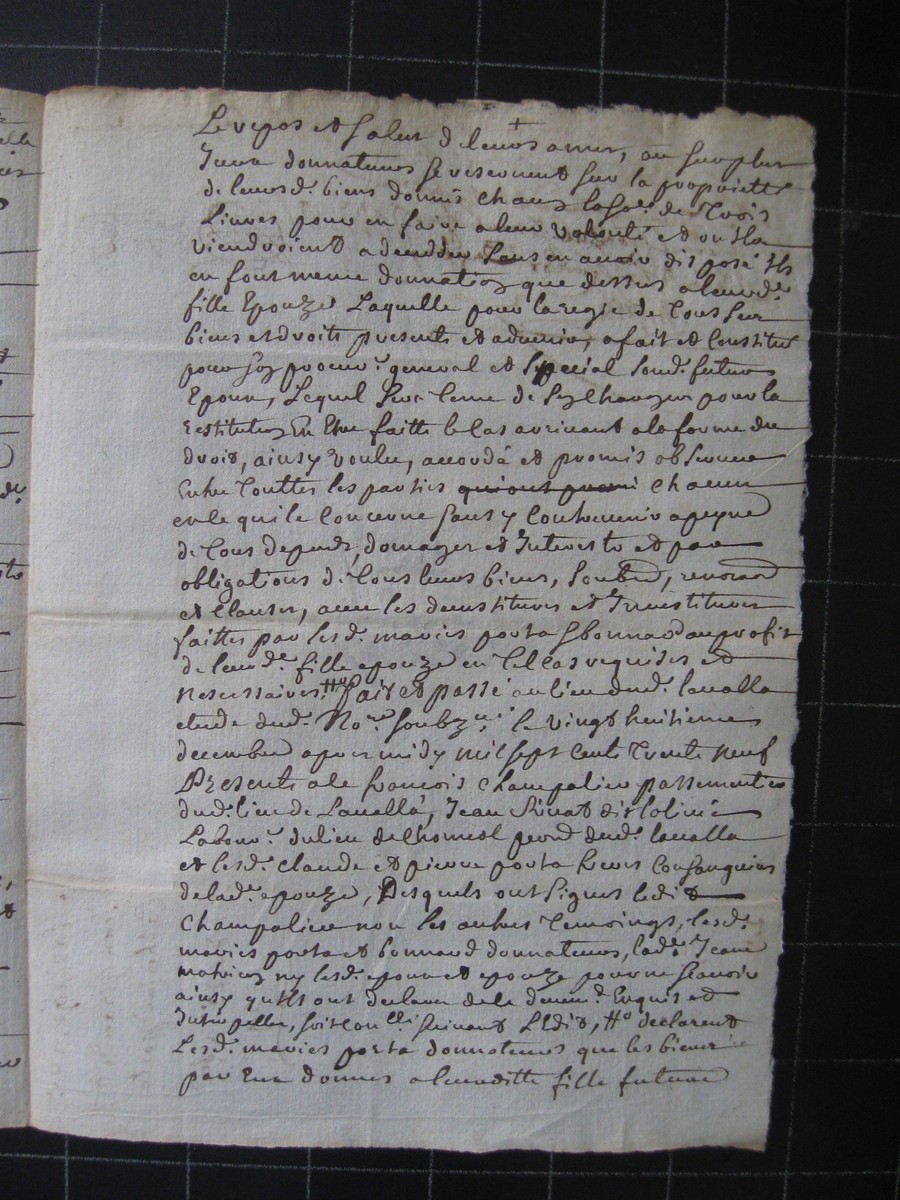 +
Le repos et salut de leurs ames, au surplus
Iceux donnateurs se reservent sur la proprietté
de leursd. biens donnés chacun la so.e de trois
Livres pour en faire a leur volonté et ou ils
viendroient a decedder sans en avoir disposé ils
en font meme donnation que dessus a leurd.e
fille Epouze Laquelle pour la regie de tous ses
biens et droits presents et advenir, a fait et Constitué
pour son procur.r general et special sond. futur
Epoux, Lequel sera tenu de pour la
restitution En Etre faitte le Cas arrivant a la forme du
droit, ainsy voulu, accordé et promis observer
Entre touttes les parties chacun
en ce qui le Concerne sans y Contrevenir a peyne
de tous depends, domages et Interests et par
obligations de tous leurs biens, soubm, renon
et Clauses, avec les demistitures et Investitures
faittes par lesd. mariés porta et bonnard au profit
de leurd.e fille epouze en tel cas requises et
necessaires, fait et passé au lieu dud. lavalla
etude dud. No.re soubz.né le vingt huitieme
decembre apres midy mil sept cents trente neuf
Presents a ce françois Champalier passementier
dud. lieu de Lavallá, Jean dit
Labour.r du lieu de lhomol dud. lavalla
et lesd. Claude et pierre porta freres Consanguins
de lad. epouze, Desquels ont signés ledit
Champalier non les autres temoings, lesd.
mariés porta et bonnard donnateurs, lad.e Jeane
ny lesd. epoux et epouze pour ne sçavoir
ainsy qu'ils ont declaré de ce deuem.t Enquis et
Interpellés, soit con.llé suivant L'Edit, declarent
Lesd. mariés porta donnateurs que les biens
par Eux donnés a leurditte fille future